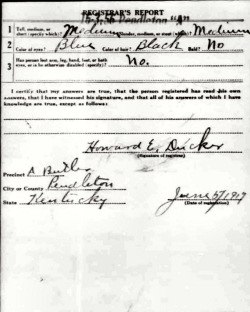 REGISTRAR'S REPORT
15-7-56 Pendleton "A"
1 Tall, medium, or short (specify)? Medium Slender, medium, or stout (which)? Medium
2 Color of eyes? Blue Color of hair? Black Bald? No
3 Has person lost arm, leg, hand, foot, or both eyes, or is he otherwise disabled (specify)? No.
I certify that my answers are true, that the person registered has read his own
answers, that I have witnessed his signature, and that all of his answers of which I have
knowledge are true, except as follows:
Howard E. Ducker
(Signature of registrar)
Precinct A Butler
City or County Pendleton
State Kentucky
June 5/1917
(Date of registration)